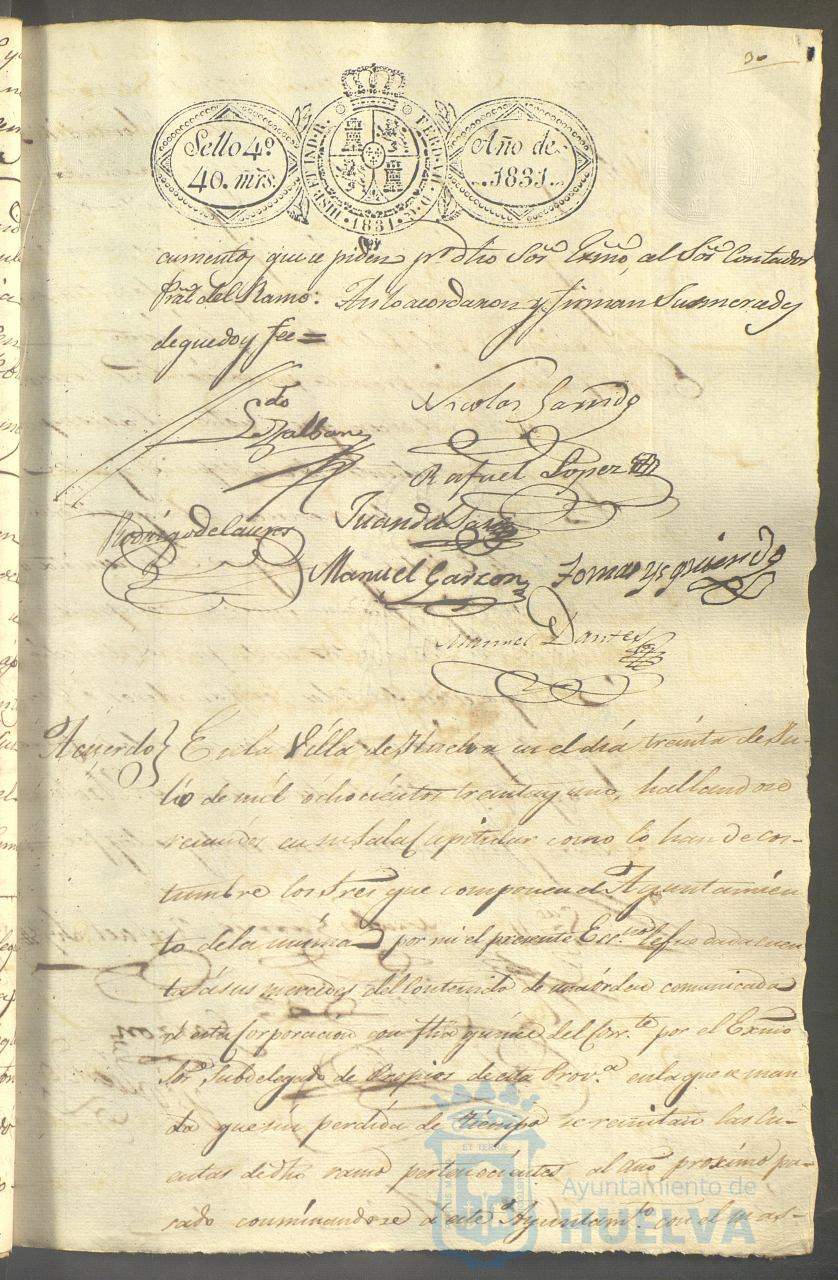 Sello 4º
40. mrs.
HISP. ET IND. R. FERD. VII. D. G. 1831
Año de
1831.
cumentos que se piden pr. dho Sor. Exmo, al Sor. Contador
Pral. del Ramo: Asi lo acordaron y firman Sus mercedes
de que doy fee =
Nicolas Garrido
Rafael Lopez
Juan de
Manuel Garzon
Tomas Ysquierdo
Manuel
Acuerdo } En la Villa de Huelva en el dia treinta de Ju-
lio de mil ochocientos treinta y uno, hallandose
reunidos en su Sala Capitular como lo han de cos-
tumbre los Sres que componen el Ayuntamien
to de la misma por mi el presente Ess.no le fue dada cuen
ta á sus mercedes del Contenido de una órden comunicada
á esta Corporacion con fha quince del Corr.te por el Exmo
Sor. Subdelegado de Propios de esta Prov.a en la que se man
da que sin perdida de tiempo se remitan las Cu-
entas de dho ramo pertenecientes al año proximo pa-
sado conminandose á este Ayuntam.to con el
ET TERRAE
Ayuntamiento de
HUELVA